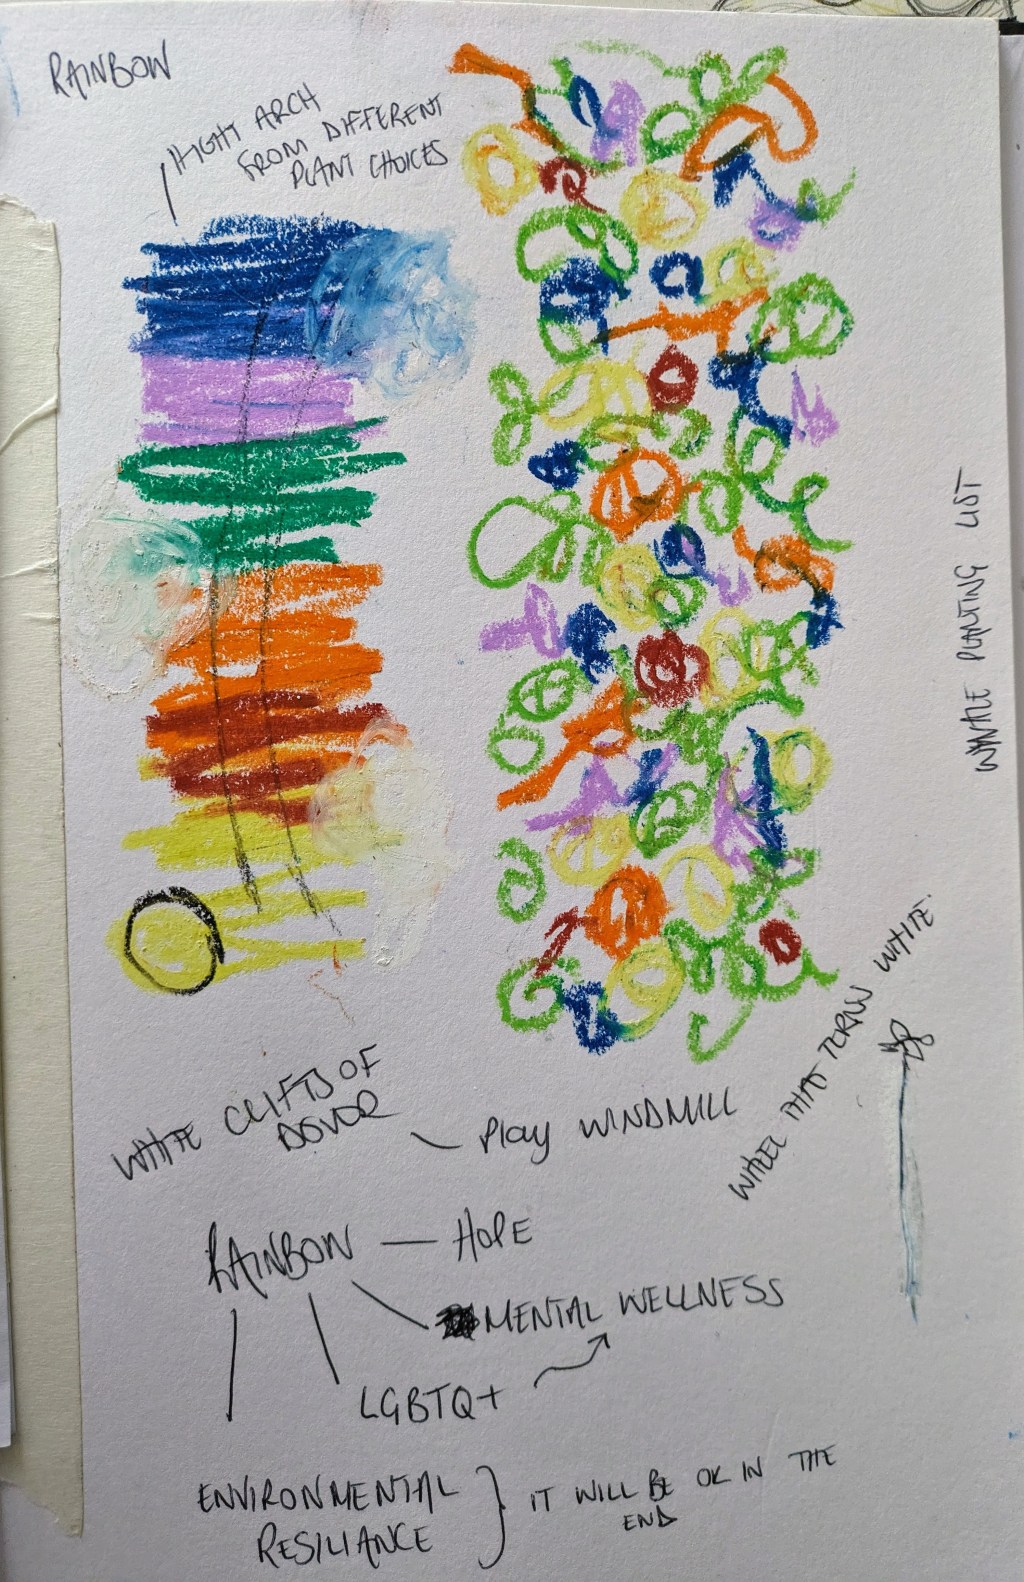 RAINBOW
HIGHT ARCH
FROM DIFFERENT
PLANT CHOICES
WHOLE PLANTING LIST
WHITE CLIFTS OF
DOVOR
Play WINDMILL
WHEEL THAT TURNS WHITE
RAINBOW — HOPE
MENTAL WELLNESS
LGBTQ+
ENVIRONMENTAL
RESILIANCE
IT WILL BE OK IN THE
END